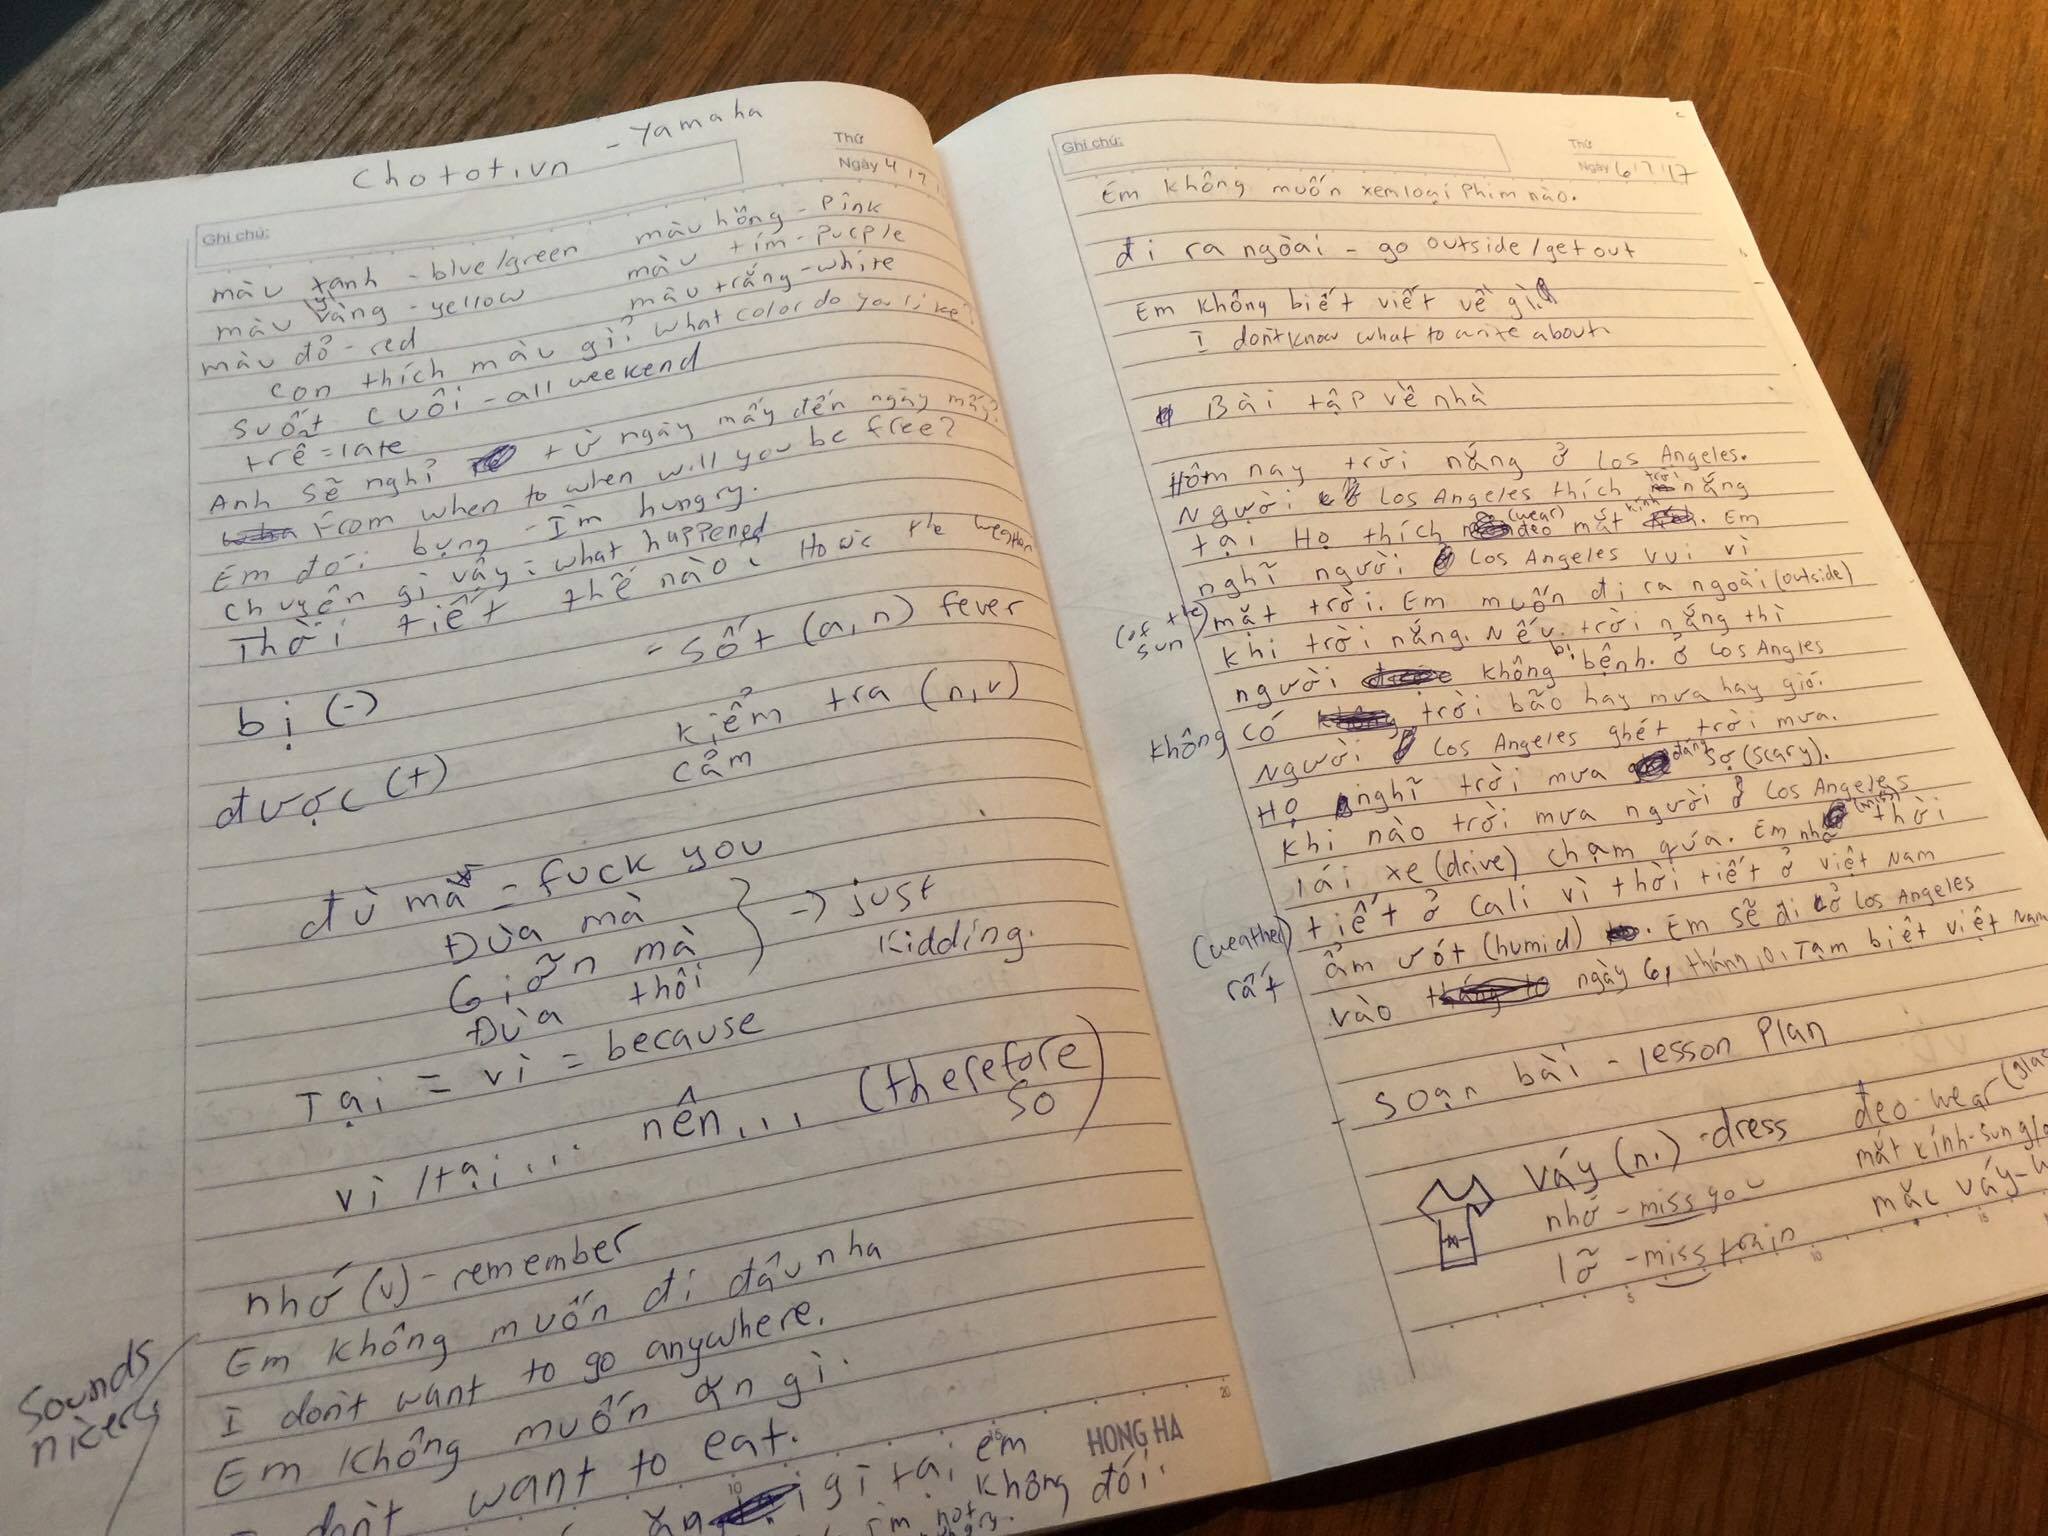 Chotot.vn - Yamaha
Thứ
Ngày 4/7/
Ghi chú:
màu xanh - blue/green màu hồng - Pink
màu vàng - yellow màu tím - purple
màu đỏ - red màu trắng - white
con thích màu gì? what color do you like?
suốt cuối - all weekend
trễ = late
Anh sẽ nghỉ từ ngày mấy đến ngày mấy?
From when to when will you be free?
Em đói bụng - I'm hungry.
chuyện gì vậy: what happened
Thời tiết thế nào? How's the weather
= sốt (a, n) fever
bị (-)
kiểm tra (n, v)
được (+) cảm
đù má = fuck you
Đùa mà
Giỡn mà -> just kidding.
Đùa thôi
Tại = vì = because
vì/tại... nên... (therefore so)
nhớ (v) - remember
Em không muốn đi đâu nha
I don't want to go anywhere.
Sounds nicer
Em không muốn ăn gì.
I don't want to eat.
ăn gì tại em không đói.
I'm not hungry.
HONG HA
Ghi chú:
Thứ
Ngày 6/7/17
Em không muốn xem loại phim nào.
đi ra ngoài - go outside/get out
Em không biết viết về gì.
I don't know what to write about.
Bài tập về nhà
Hôm nay trời nắng ở Los Angeles.
Người ở Los Angeles thích trời nắng
tại Họ thích đeo (wear) mắt kính. Em
nghĩ người ở Los Angeles vui vì
(of the sun) mặt trời. Em muốn đi ra ngoài (outside)
khi trời nắng. Nếu trời nắng thì
người không bị bệnh. ở Los Angles
không có trời bão hay mưa hay gió.
Người ở Los Angeles ghét trời mưa.
Họ nghĩ trời mưa đáng sợ (scary).
khi nào trời mưa người ở Los Angeles
lái xe (drive) chạm qúa. Em nhớ (miss) thời
(weather) tiết ở Cali vì thời tiết ở việt Nam
rất ẩm ướt (humid). Em sẽ đi ở Los Angeles
vào ngày 6, tháng 10. Tạm biệt việt Nam
soạn bài - lesson plan
váy (n.) - dress đeo - wear
nhớ - miss you mắt kính -
lỡ - miss train mặc váy -